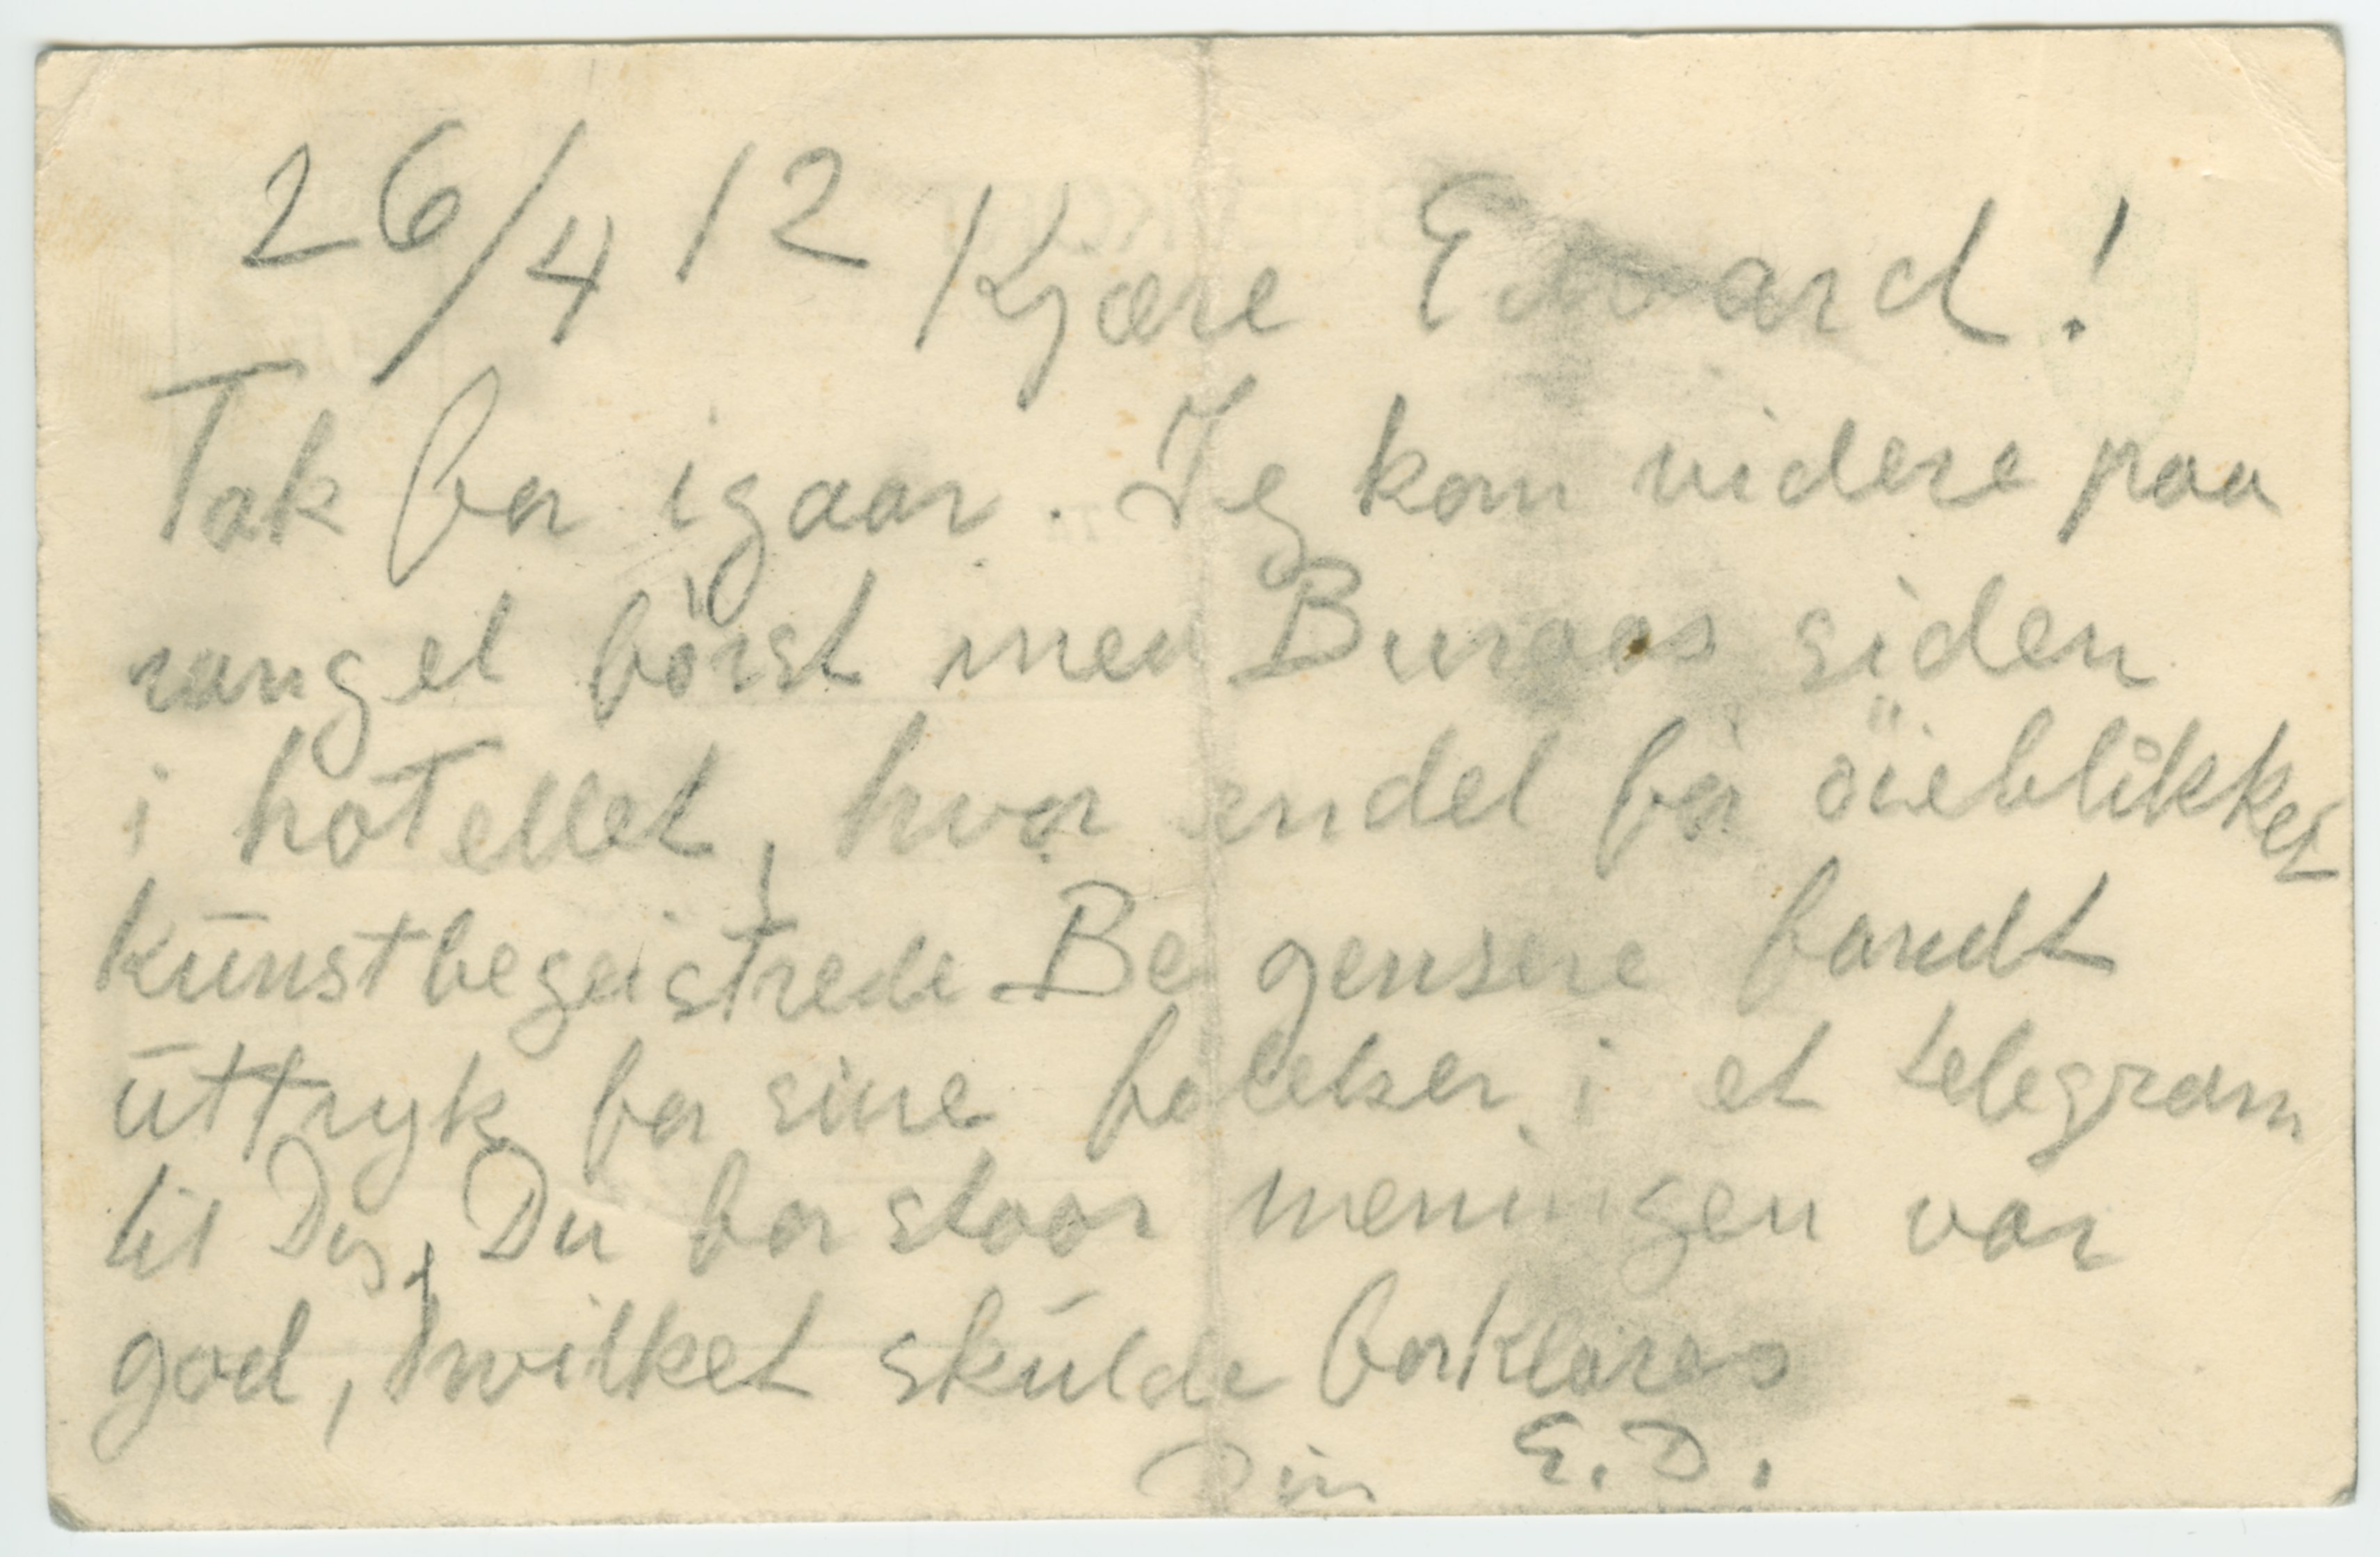 26/4 12 Kjære Edvard!
Tak for igaar. Jeg kom videre paa
rangel först med Buraas siden
i hotellet, hvor endel för öieblikket
kunstbegeistrede Bergensere fandt
uttryk for sine følelser i et telegram
til Dig, Du forstaar meningen var
god, hvilket skulde forklares
Din E.D.